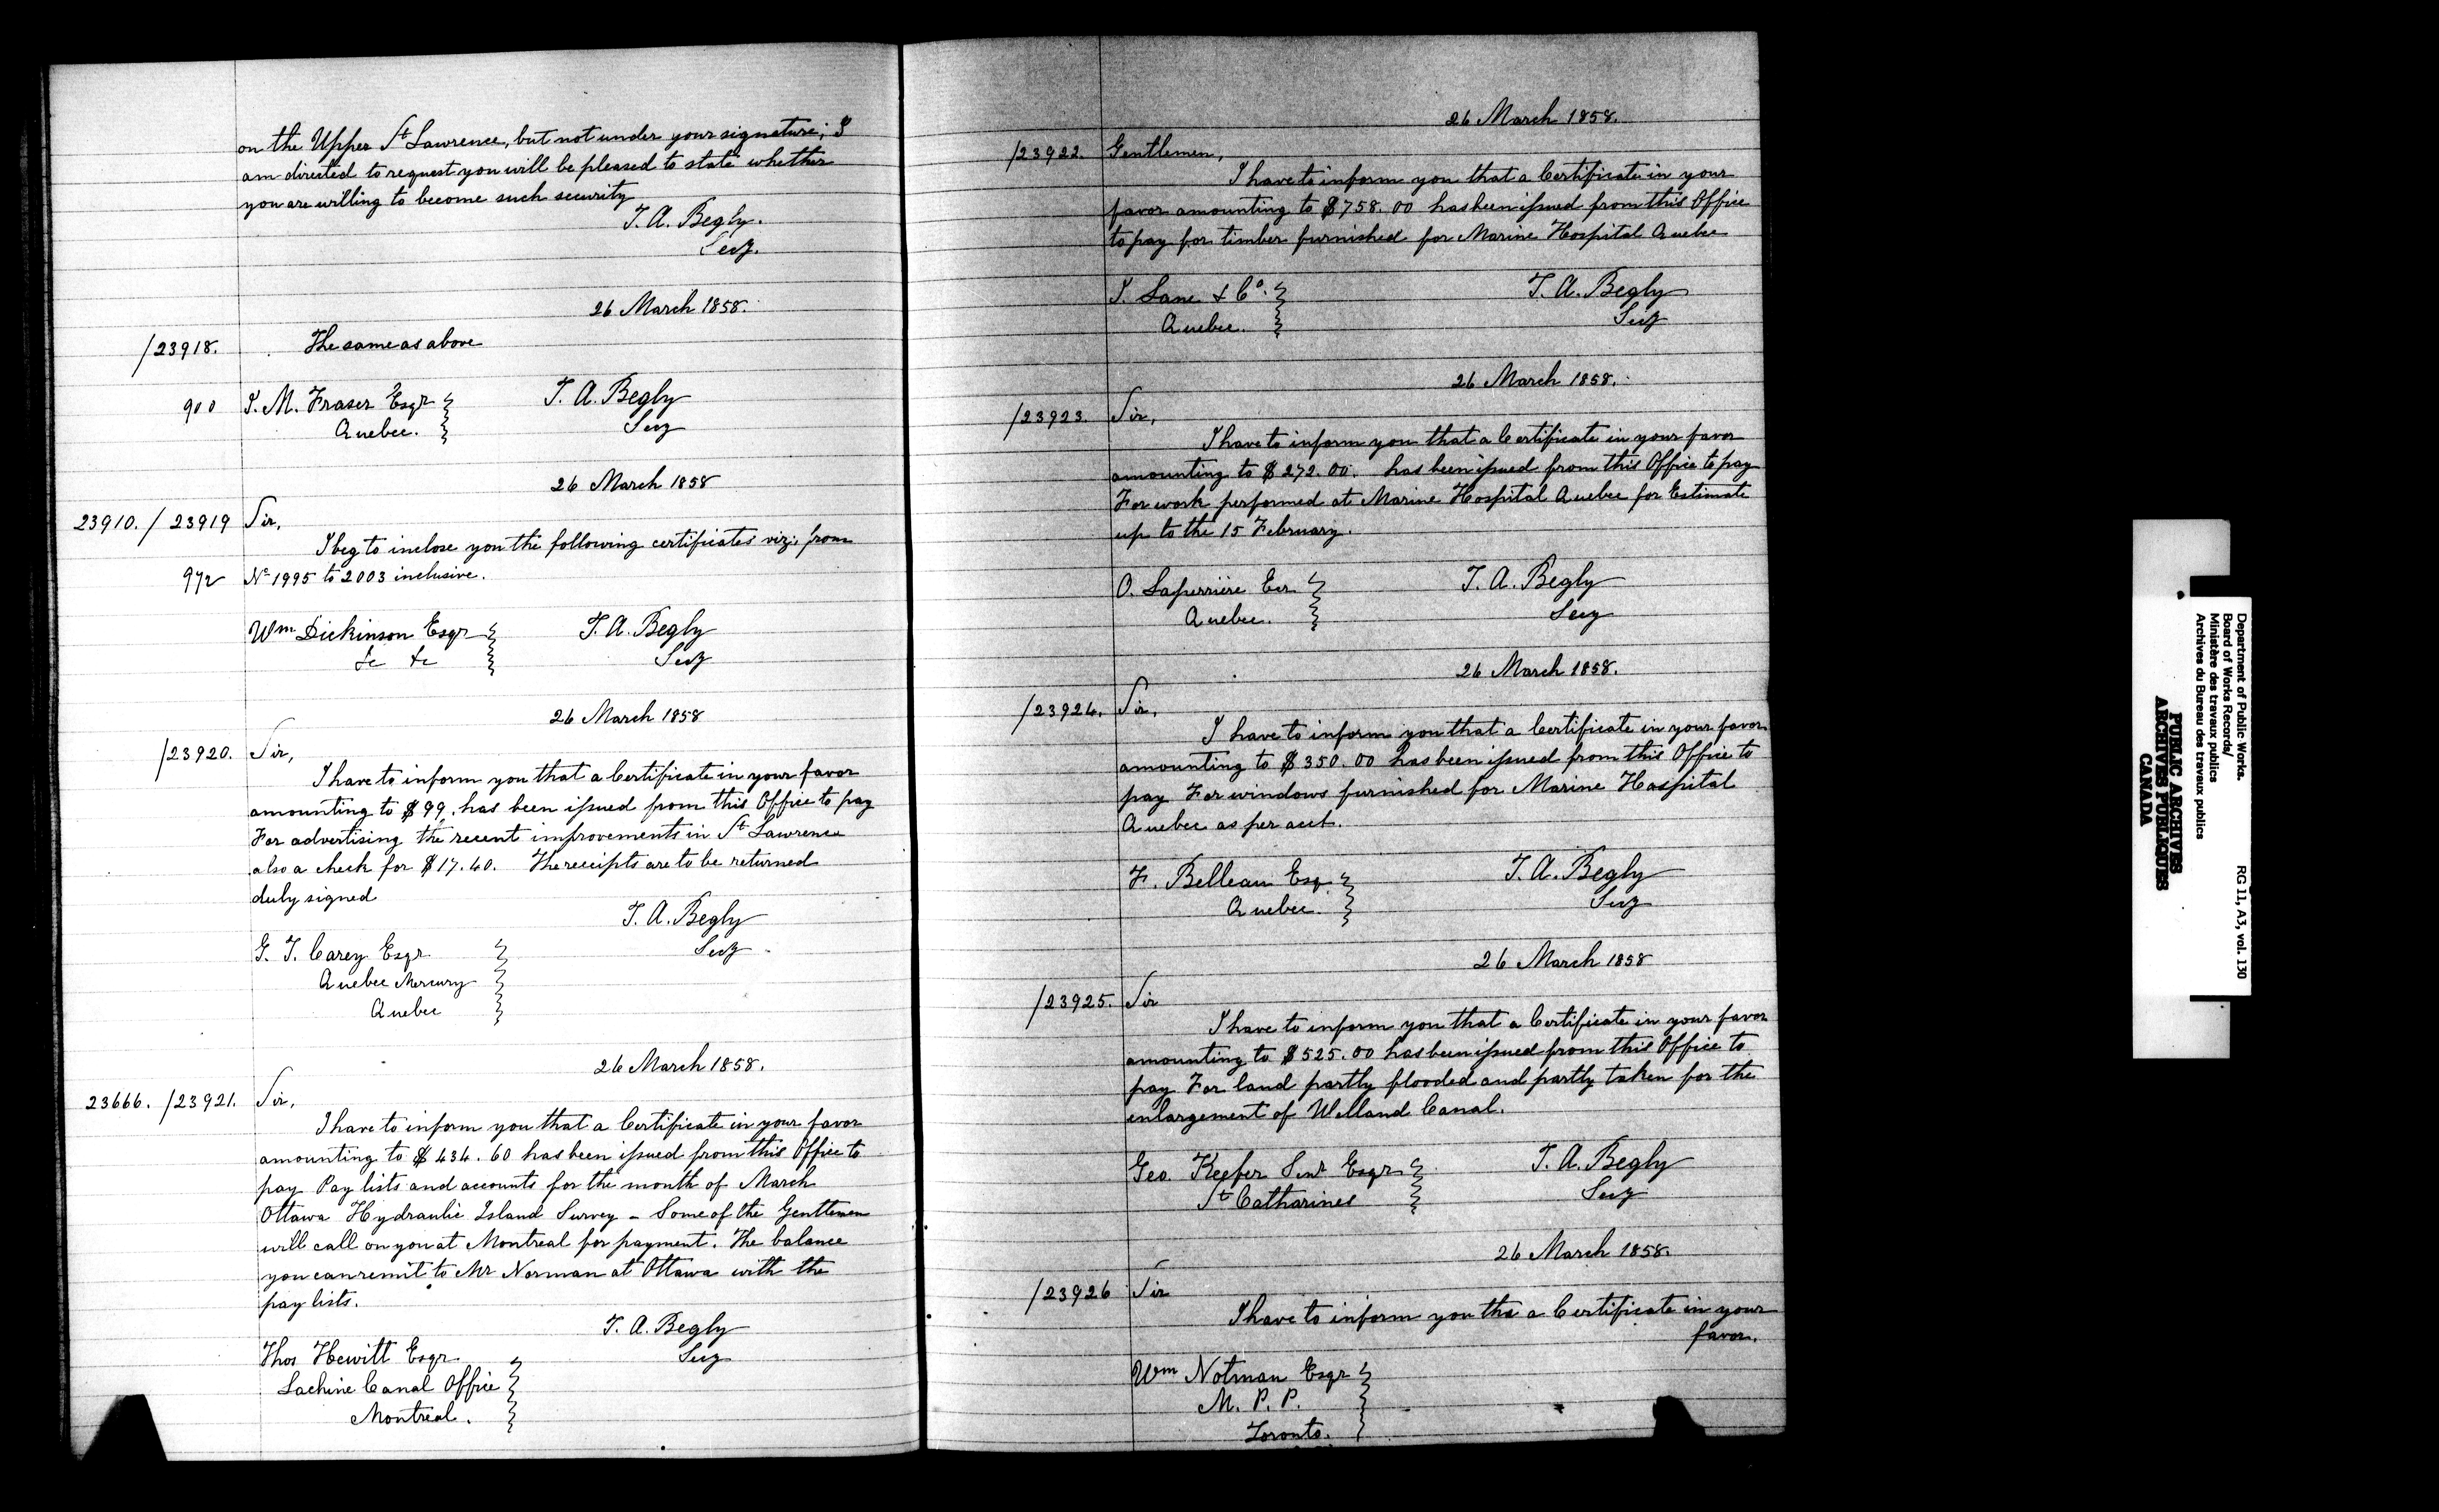 on the Upper St Lawrence, but not under your signature; I
am directed to request you will be pleased to state whether
you are willing to become such security
T. A. Begly.
Secy.
26 March 1858.
/23918. The same as above
900 J. M. Fraser Esqr
Quebec.
T. A. Begly
Secy
26 March 1858
23910. / 23919 Sir,
I beg to inclose you the following certificates viz: from
972 No 1995 to 2003 inclusive.
Wm Dickinson Esqr
&c &c
T. A. Begly
Secy
26 March 1858
/23920. Sir,
I have to inform you that a Certificate in your favor
amounting to $99, has been issued from this Office to pay
For advertising the recent improvements in St Lawrence
also a check for $17.40. The receipts are to be returned
duly signed
T. A. Begly
Secy
G. T. Carey Esqr
Quebec Mercury
Quebec
26 March 1858.
23666. /23921. Sir,
I have to inform you that a Certificate in your favor
amounting to $434.60 has been issued from this Office to
pay Pay lists and accounts for the month of March
Ottawa Hydraulic Island Survey - Some of the Gentlemen
will call on you at Montreal for payment. The balance
you can remit to Mr Norman at Ottawa with the
pay lists.
T. A. Begly
Secy
Thos Hewitt Esqr
Lachine Canal Office
Montreal.
26 March 1858.
/23922. Gentlemen,
I have to inform you that a Certificate in your
favor amounting to $758.00 has been issued from this Office
to pay for timber furnished for Marine Hospital Quebec
J. Lane & Co.
Quebec.
T. A. Begly
Secy
26 March 1858.
/23923. Sir,
I have to inform you that a Certificate in your favor
amounting to $272.00. has been issued from this Office to pay
For work performed at Marine Hospital Quebec for Estimate
up to the 15 February.
O. Laperrière Esr
Quebec.
T. A. Begly
Secy
26 March 1858.
/23924. Sir,
I have to inform you that a Certificate in your favor
amounting to $350.00 has been issued from this Office to
pay For windows furnished for Marine Hospital
Quebec as per acct.
F. Belleau Esq.
Quebec.
T. A. Begly
Secy
26 March 1858
/23925. Sir
I have to inform you that a Certificate in your favor
amounting to $525.00 has been issued from this Office to
pay For land partly flooded and partly taken for the
enlargement of Welland Canal.
Geo. Keefer Senr Esqr
St Catharines
T. A. Begly
Secy
26 March 1858.
/23926 Sir
I have to inform you tha a Certificate in your
favor.
Wm Notman Esqr
M. P. P.
Toronto.
Department of Public Works.
Board of Works Records/
Ministère des travaux publics
Archives du Bureau des travaux publics
RG 11, A3, vol. 130
PUBLIC ARCHIVES
ARCHIVES PUBLIQUES
CANADA